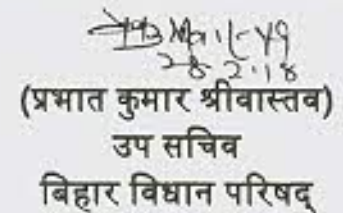 28.2.18
(प्रभात कुमार श्रीवास्तव)
उप सचिव
बिहार विधान परिषद्